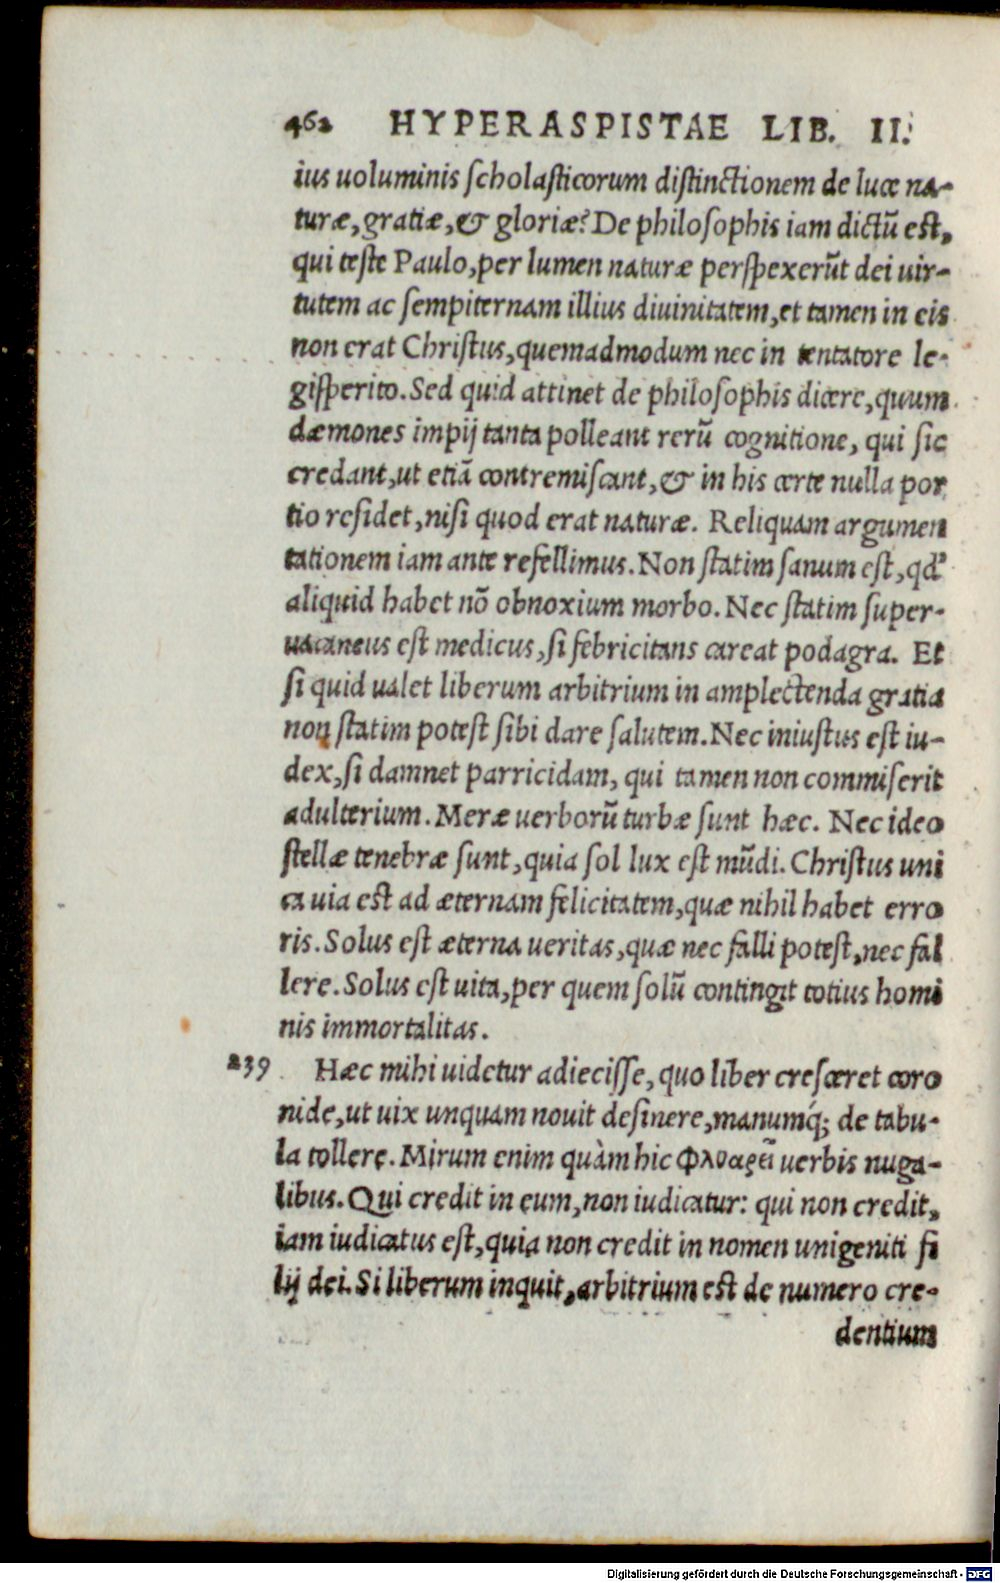 462 HYPERASPISTAE LIB. II.
ius uoluminis scholasticorum distinctionem de luce na-
turæ, gratiæ, & gloriæ? De philosophis iam dictũ est,
qui teste Paulo, per lumen naturæ perspexerũt dei uir-
tutem ac sempiternam illius diuinitatem, et tamen in eis
non erat Christus, quemadmodum nec in tentatore le-
gisperito. Sed quid attinet de philosophis dicere, quum
dæmones impij tanta polleant rerũ cognitione, qui sic
credant, ut etiã contremiscant, & in his certe nulla por
tio residet, nisi quod erat naturæ. Reliquam argumen
tationem iam ante refellimus. Non statim sanum est, qđ
aliquid habet nõ obnoxium morbo. Nec statim super-
uacaneus est medicus, si febricitans careat podagra. Et
si quid ualet liberum arbitrium in amplectenda gratia
non statim potest sibi dare salutem. Nec iniustus est iu-
dex, si damnet parricidam, qui tamen non commiserit
adulterium. Meræ uerborũ turbæ sunt hæc. Nec ideo
stellæ tenebræ sunt, quia sol lux est mũdi. Christus uni
ca uia est ad æternam felicitatem, quæ nihil habet erro
ris. Solus est æterna ueritas, quæ nec falli potest, nec fal
lere. Solus est uita, per quem solũ contingit totius homi
nis immortalitas.
239 Hæc mihi uidetur adiecisse, quo liber cresceret coro
nide, ut uix unquam nouit desinere, manumq́; de tabu-
la tollere. Mirum enim quàm hic φλυαρεῖ uerbis nuga-
libus. Qui credit in eum, non iudicatur: qui non credit,
iam iudicatus est, quia non credit in nomen unigeniti fi
lij dei. Si liberum inquit, arbitrium est de numero cre-
dentium
Digitalisierung gefördert durch die Deutsche Forschungsgemeinschaft - DFG